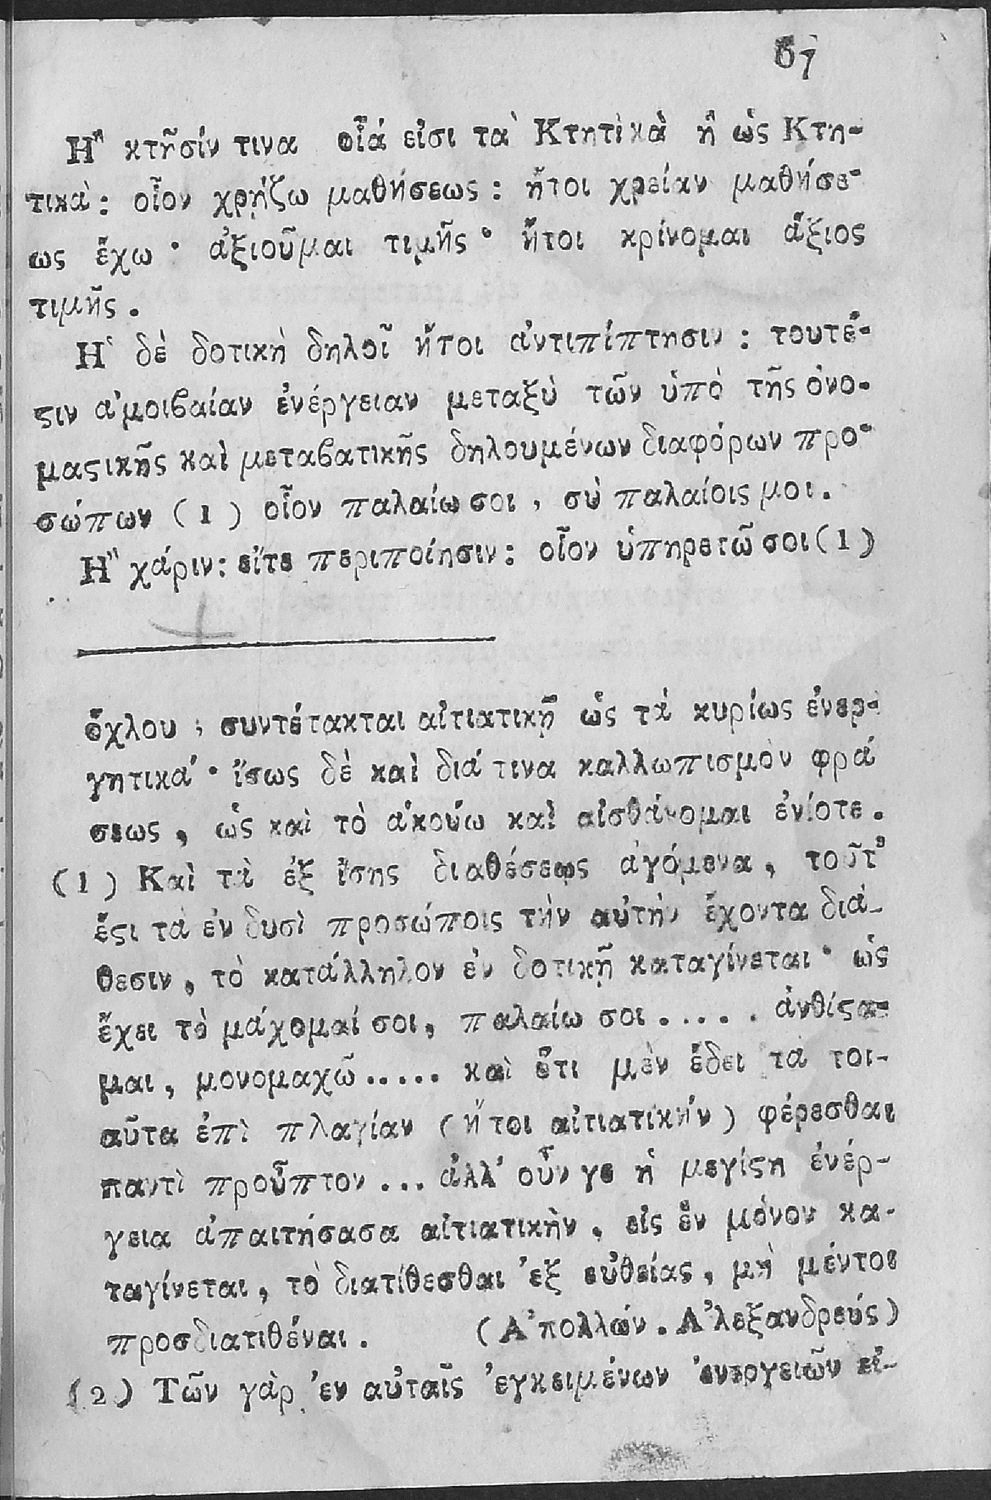 67
Ἢ κτῆσίν τινα οἷά εἰσι τὰ Κτητικὰ ἢ ὡς Κτη-
τικὰ: οἷον χρῄζω μαθήσεως: ἤτοι χρείαν μαθήσε-
ως ἔχω · ἀξιοῦμαι τιμῆς · ἤτοι κρίνομαι ἄξιος
τιμῆς.
Ἡ δὲ δοτικὴ δηλοῖ ἤτοι ἀντιπίπτησιν: τουτέ-
ϛιν ἀμοιβαίαν ἐνέργειαν μεταξὺ τῶν ὑπὸ τῆς ὀνο-
μαϛικῆς καὶ μεταβατικῆς δηλουμένων διαφόρων προ-
σώπων (1) οἷον παλαίω σοι, σὺ παλαίοις μοι.
Ἢ χάριν: εἴτε περιποίησιν: οἷον ὑπηρετῶ σοι (1)
ὄχλου, συντέτακται αἰτιατικῇ ὡς τὰ κυρίως ἐνερ-
γητικά · ἴσως δὲ καὶ διά τινα καλλωπισμὸν φρά
σεως, ὡς καὶ τὸ ἀκούω καὶ αἰσθάνομαι ἐνίοτε.
(1) Καὶ τὰ ἐξ ἴσης διαθέσεως ἀγόμενα, τοῦτ'
ἔϛι τὰ ἐν δυσὶ προσώποις τὴν αὐτὴν ἔχοντα διά-
θεσιν, τὸ κατάλληλον ἐν δοτικῇ καταγίνεται · ὡς
ἔχει τὸ μάχομαί σοι, παλαίω σοι ..... ἀνθίϛα-
μαι, μονομαχῶ ..... καὶ ὅτι μὲν ἔδει τὰ τοι-
αῦτα ἐπὶ πλαγίαν (ἤτοι αἰτιατικὴν) φέρεσθαι
παντὶ προῦπτον ... ἀλλ' οὖν γε ἡ μεγίϛη ἐνέρ-
γεια ἀπαιτήσασα αἰτιατικὴν, εἰς ἓν μόνον κα-
ταγίνεται, τὸ διατίθεσθαι ἐξ εὐθείας, μὴ μέντοι
προσδιατιθέναι. (Ἀπολλών. Ἀλεξανδρεύς)
(2) Τῶν γὰρ ἐν αὐταῖς ἐγκειμένων ἐνεργειῶν εἰ-